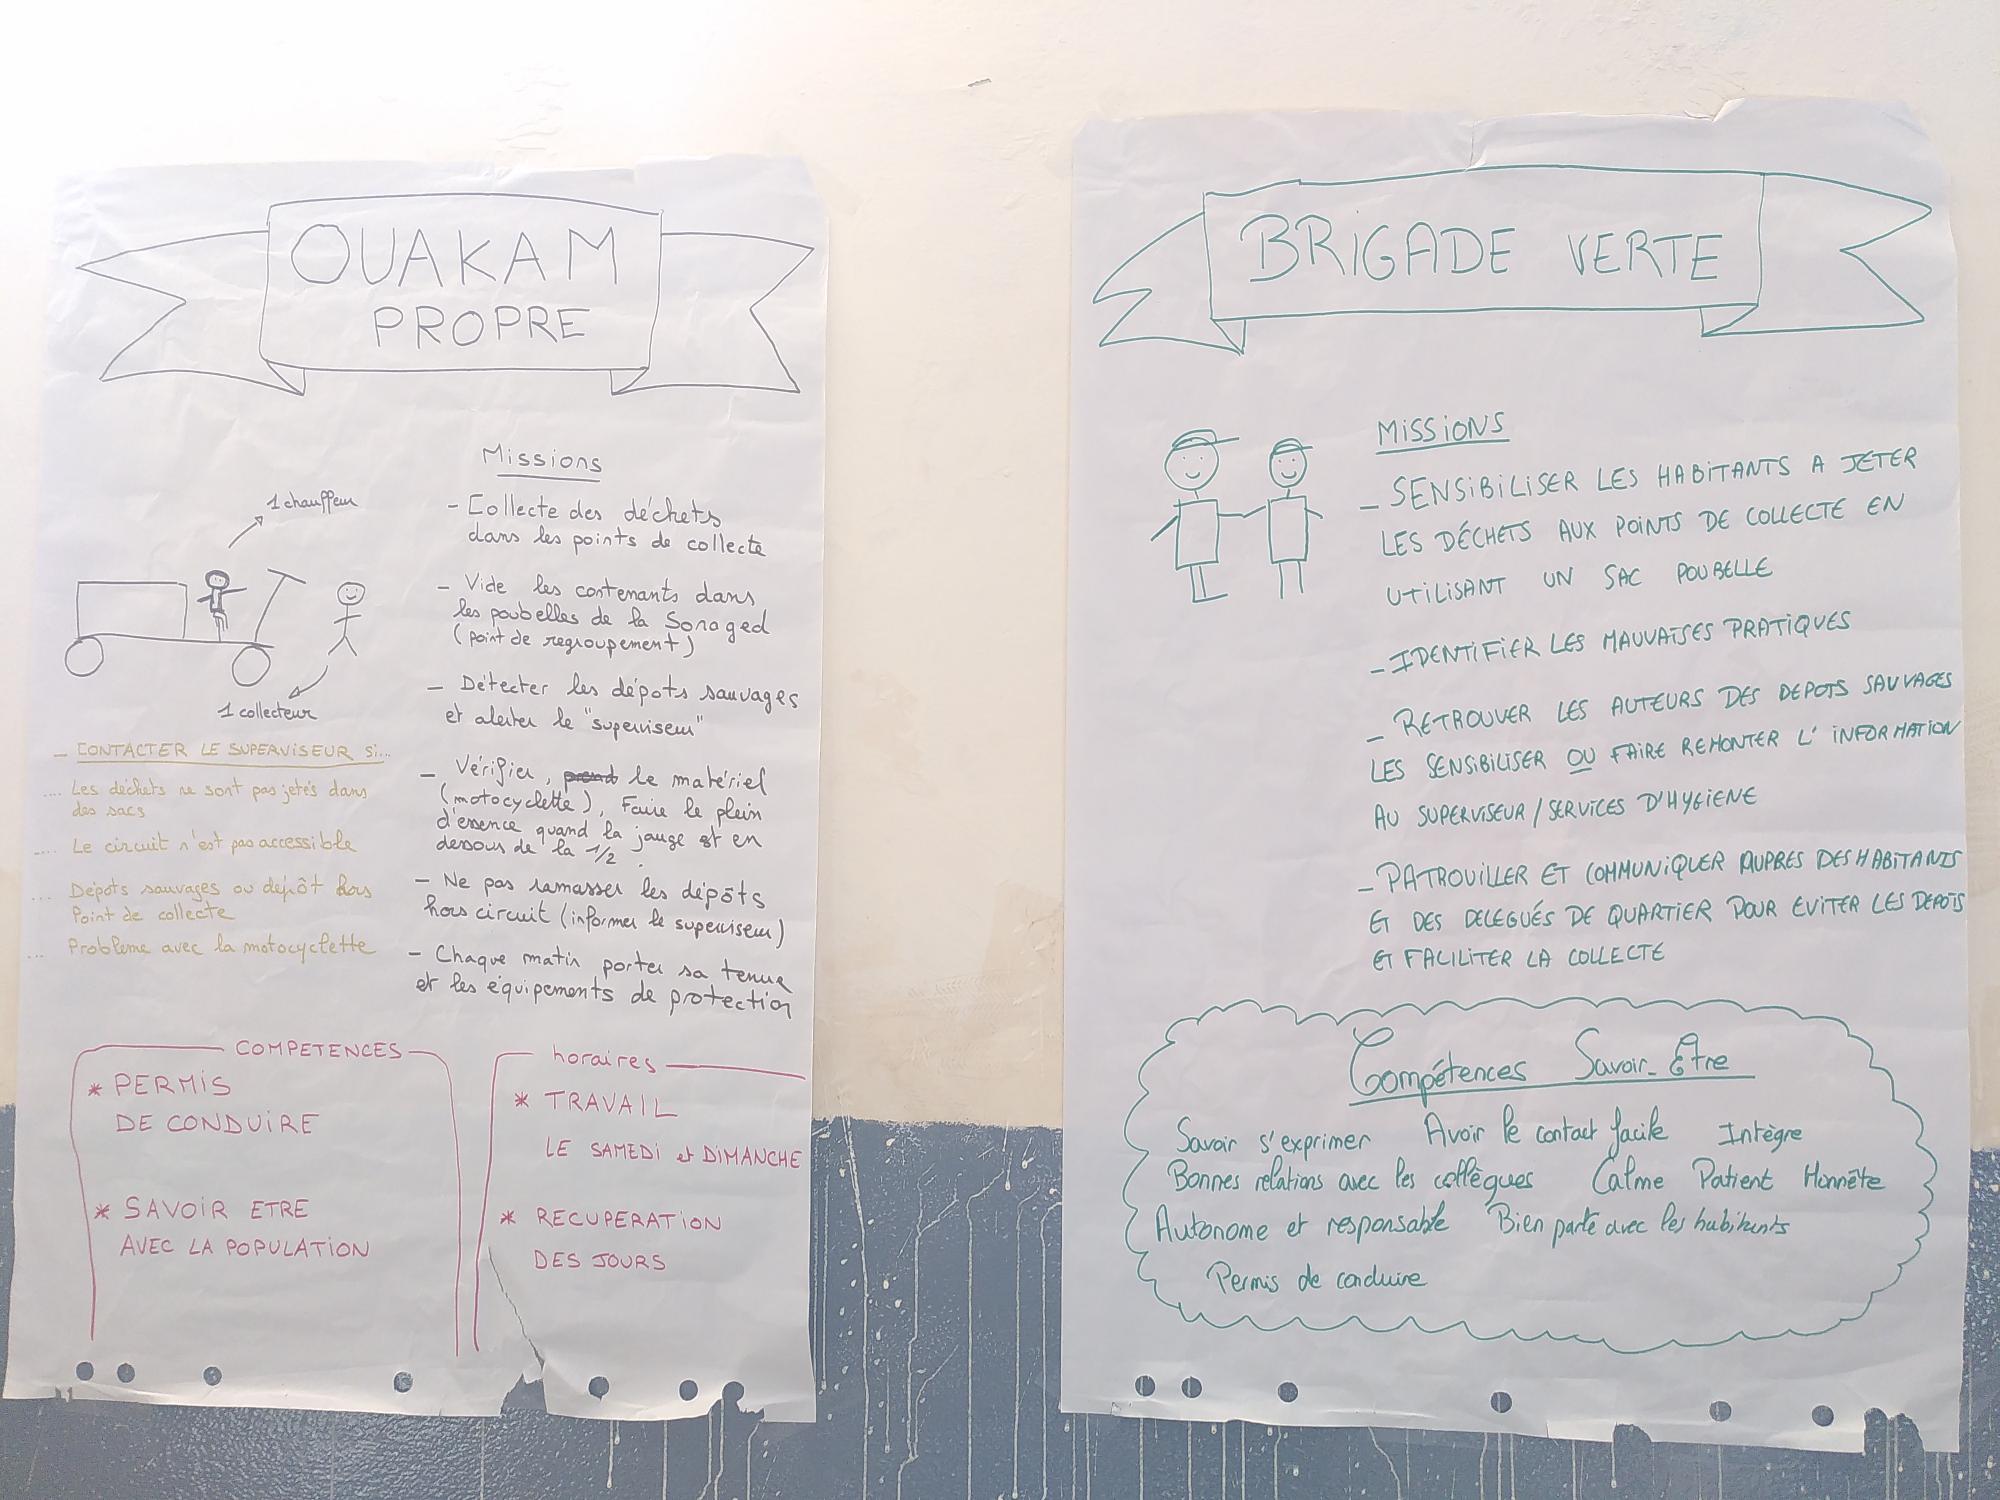 OUAKAM
PROPRE
1 chauffeur
1 collecteur
Missions
- Collecte des déchets
dans les points de collecte
- Vide les contenants dans
les poubelles de la Sonaged
(point de regroupement)
- Détecter les dépots sauvages
et alerter le "superviseur"
- Vérifier, prend le matériel
(motocyclette), Faire le plein
d'essence quand la jauge est en
dessous de la 1/2.
- Ne pas ramasser les dépôts
hors circuit (informer le superviseur)
- Chaque matin porter sa tenue
et les équipements de protection
- CONTACTER LE SUPERVISEUR Si...
.... Les déchets ne sont pas jetés dans
des sacs
.... Le circuit n'est pas accessible
... Dépots sauvages ou dépôt hors
Point de collecte
... Probleme avec la motocyclette
COMPETENCES
* PERMIS
DE CONDUIRE
* SAVOIR ETRE
AVEC LA POPULATION
horaires
* TRAVAIL
LE SAMEDI et DIMANCHE
* RECUPERATION
DES JOURS
BRIGADE VERTE
MISSIONS
- SENSIBILISER LES HABITANTS A JETER
LES DÉCHETS AUX POINTS DE COLLECTE EN
UTILISANT UN SAC POUBELLE
- IDENTIFIER LES MAUVAISES PRATIQUES
- RETROUVER LES AUTEURS DES DEPOTS SAUVAGES
LES SENSIBILISER OU FAIRE REMONTER L'INFORMATION
AU SUPERVISEUR / SERVICES D'HYGIENE
- PATROUILLER ET COMMUNIQUER AUPRES DES HABITANTS
ET DES DELEGUÉS DE QUARTIER POUR EVITER LES DEPOTS
ET FACILITER LA COLLECTE
Compétences Savoir-Etre
Savoir s'exprimer Avoir le contact facile Intègre
Bonnes relations avec les collègues Calme Patient Honnête
Autonome et responsable Bien parlé avec les habitants
Permis de conduire